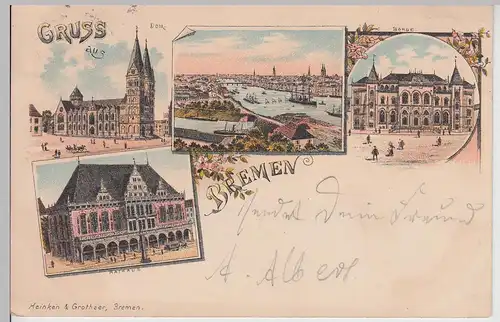 GRUSS
aus
DOM.
BÖRSE
BREMEN
RATHAUS
sendet Dein Freund
A. Albers
Heinken & Grotheer, Bremen.